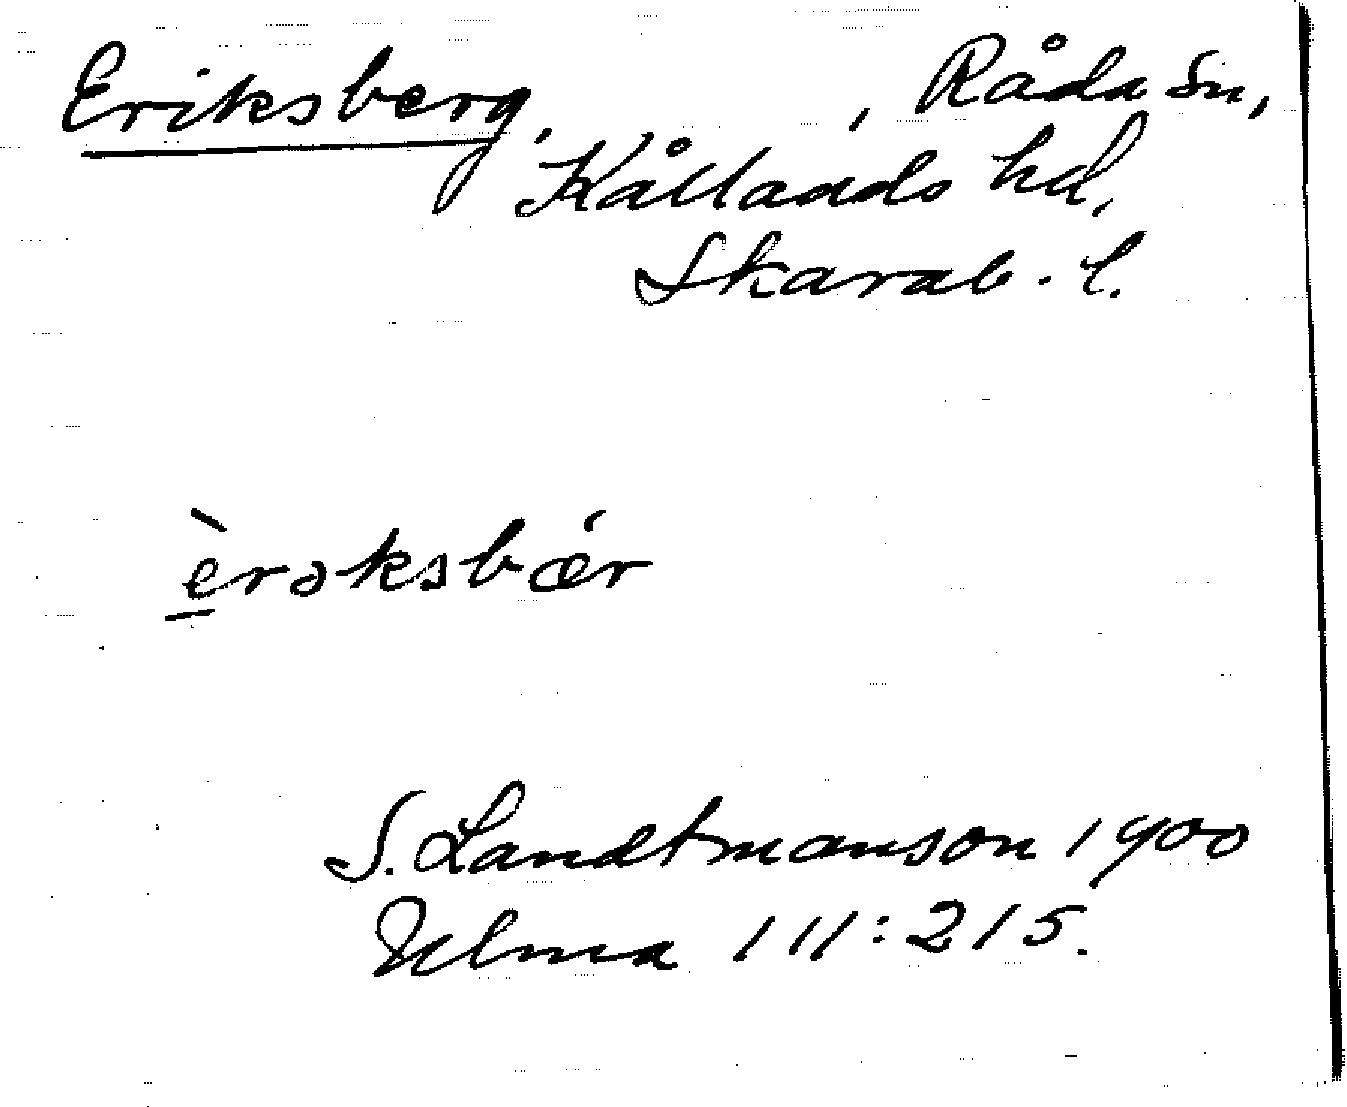 Eriksberg, , Råda sn,
Kållands hd,
Skarab. l.
èrəksbǽr
S. Landtmanson 1900
Ulma 111:215.